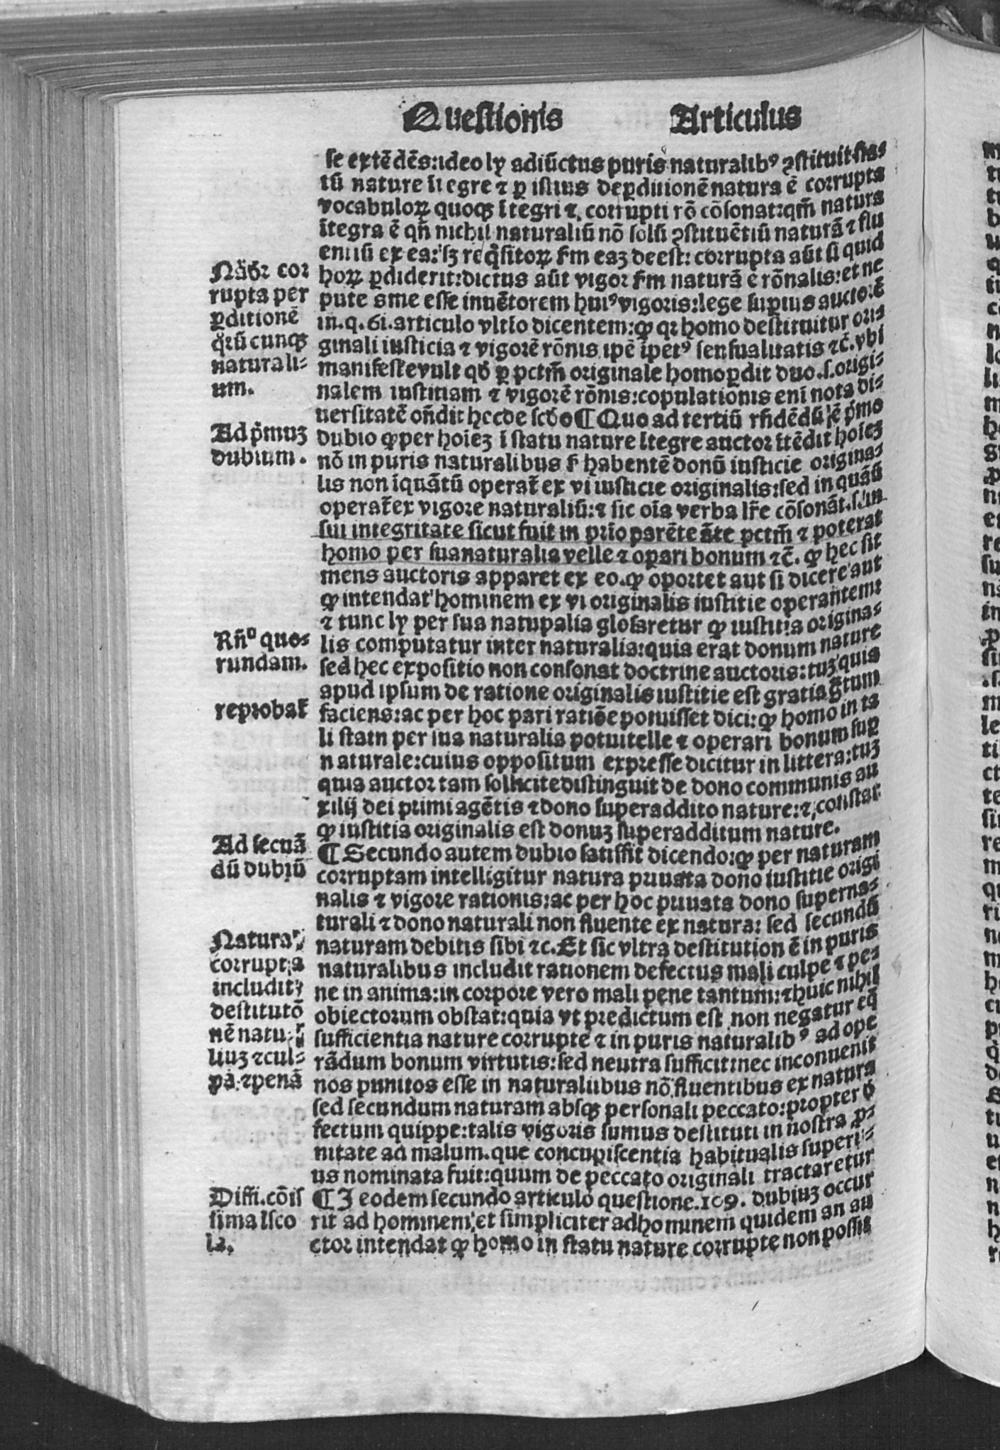 Questionis Articulus
se extēdēs: ideo ly adiūctus puris naturalibꝰ ꝯstituit sta⸗
tū nature ītegre ⁊ ꝑ istius deꝑditionē natura ē corrupta
vocabuloꝝ quoqꝫ ītegri ⁊ corrupti rō cōsonat: qm̄ natura
ītegra ē qn̄ nichil naturaliū nō solū ꝯstituētiū naturā ⁊ flu
entiū ex ea: sꝫ reqͥsitoꝝ ẜm eaꝫ deest: corrupta aūt si quid
hoꝝ ꝑdiderit: dictus aūt vigor ẜm naturā ē rōnalis: et ne
pute sme esse inuētorem huiꝰ vigoris: lege suꝑius aucto.ē
in.q.61.articulo vltīo dicentem: ꝙ qꝛ homo destituitur ori⸗
ginali iusticia ⁊ vigorē rōnis ipē īpetꝰ sensualitatis ⁊c̄. vbi
manifeste vult qd̓ ꝑ pctm̄ originale homo ꝑdit duo.s.origi⸗
nalem iustitiam ⁊ vigorē rōnis: copulationis eni nota di⸗
uersitatē on̄dit hec de scd̓o ¶ Quo ad tertiū rn̄dēdū ē pͥmo
dubio ꝙ per hoieꝫ ī statu nature ītegre auctor ītēdit hoieꝫ
nō in puris naturalibus sꝫ habentē donū iusticie origina⸗
lis non īquātū operat̄ ex vi iusticie originalis: sed in quātū
operat̄ ex vigore naturaliū: ⁊ sic oīa verba lr̄e cōsonāt.s. in
sui integritate sicut fuit in prīo parēte āte pctm̄ ⁊ poterat
homo per sua naturalia velle ⁊ oꝑari bonum ⁊c̄. ꝙ hec sit
mens auctoris apparet ex eo. ꝙ oportet aut si dicere aut
ꝙ intendat hominem ex vi originalis iustitie operantem
⁊ tunc ly per sua natupalia glosaretur ꝙ iustitia origina⸗
lis computatur inter naturalia: quia erat donum nature
sed hec expositio non consonat doctrine auctoris: tuꝫ quia
apud ipsum de ratione originalis iustitie est gratia gr̄tum
faciens: ac per hoc pari ratiōe potuisset dici: ꝙ homo in ta
li statn per sua naturalia potuit elle ⁊ operari bonum sup
naturale: cuius oppositum expresse dicitur in littera: tuꝫ
quia auctor tam sollicite distinguit de dono communis au
xilij dei primi agētis ⁊ dono superaddito nature: ⁊ constat
ꝙ iustitia originalis est donuꝫ superadditum nature.
¶ Secundo autem dubio satisfit dicendo: ꝙ per naturam
corruptam intelligitur natura priuata dono iustitie origi
nalis ⁊ vigore rationis: ac per hoc priuata dono superna⸗
turali ⁊ dono naturali non fluente ex natura: sed secundū
naturam debitis sibi ⁊c. Et sic vltra destitutionē in puris
naturalibus includit rationem defectus mali culpe ⁊ pe⸗
ne in anima: in corpore vero mali pene tantum: ⁊ huic nihil
obiectorum obstat: quia vt predictum est non negatur eq̄
sufficientia nature corrupte ⁊ in puris naturalibꝰ ad ope
rādum bonum virtutis: sed neutra sufficit: nec inconuenit
nos punitos esse in naturalibus nō fluentibus ex natura
sed secundum naturam absqꝫ personali peccato: propter d̓
fectum quippe: talis vigoris sumus destituti in nostra ꝓ⸗
nitate ad malum. que concupiscentia habitualis superi⸗
us nominata fuit: quum de peccato originali tractaretur
¶ J eodem secundo articulo questione.109. dubiuꝫ occur
rit ad hominem: et simpliciter ad hominem quidem an au
ctor intendat ꝙ homo in statu nature corrupte non possit
Nāďr cor
rupta per
ꝑditionē
qͥtū cunqꝫ
naturali⸗
um.
Ad pͥmuꝫ
dubium.
Rn̄º quo⸗
rundam.
reprobat̄
Ad secuā
dū dubiū
Natura
corrupta
includit
destitutō
nē natu⸗
liuꝫ ⁊ cul⸗
pā ⁊ penā
Diffi. cōis
sima ī sco
la.